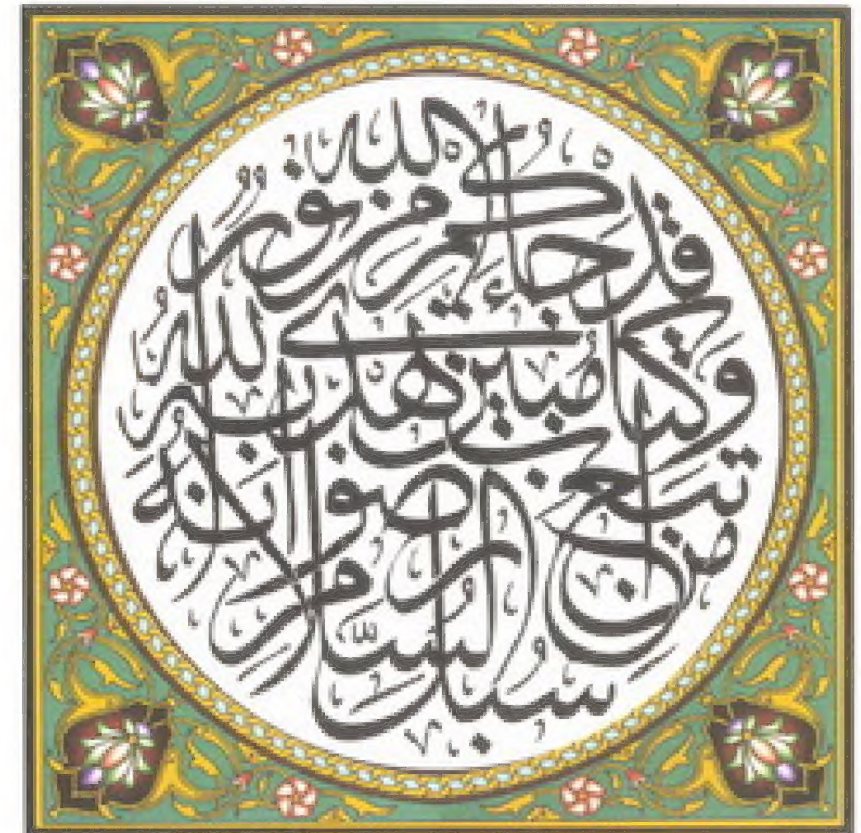 قَدْ جَاءَكُمْ مِنَ اللهِ نُورٌ
وَكِتَابٌ مُبِينٌ يَهْدِي بِهِ اللهُ
مَنِ اتَّبَعَ رِضْوَانَهُ
سُبُلَ السَّلَامِ